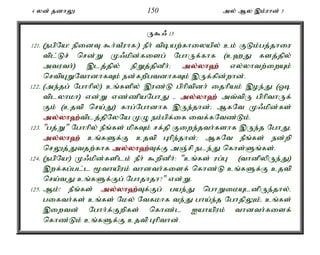 4 லன் தனாலூ 150 அல் ஆல இம்ரான் 3
ருகூஃ 13
121. (நபியே! நினைவு கூர்வீராக:) நீர் விடியற்காலையில் உம் குடும்பத்தாரை
விட்டுச் சென்று முஃமின்களைப் போருக்காக (உஹது களத்தில்
அவரவர்) இடத்தில் நிறுத்தினீர்; அல்லாஹ் எல்லாவற்றையும்
செவியுறுவோனாகவும் நன்கறிபவனாகவும் இருக்கின்றான்.
122. (அந்தப் போரில்) உங்களில் இரண்டு பிரிவினர் தைரியம் இழந்து (ஓடி
விடலாமா) என்று எண்ணியபோது – அல்லாஹ் அவ்விரு பிரிவாருக்
கும் (உதவி செய்து) காப்போனாக இருந்தான்; ஆகவே முஃமின்கள்
அல்லாஹ்விடத்திலேயே முழு நம்பிக்கை வைக்கவேண்டும்.
123. "பத்று" போரில் நீங்கள் மிகவும் சக்தி குறைந்தவர்களாக இருந்த போது,
அல்லாஹ் உங்களுக்கு உதவி புரிந்தான்; ஆகவே நீங்கள் நன்றி
செலுத்துவதற்காக அல்லாஹ்வுக்கு அஞ்சி நடந்து கொள்ளுங்கள்.
124. (நபியே!) முஃமின்களிடம் நீர் கூறினீர்: "உங்கள் ரப்பு (வானிலிருந்து)
இறக்கப்பட்ட மூவாயிரம் வானவர்களைக் கொண்டு உங்களுக்கு உதவி
செய்வது உங்களுக்குப் போதாதா?" என்று.
125. ஆம்! நீங்கள் அல்லாஹ்வுக்குப் பயந்து பொறுமையுடனிருந்தால்,
பகைவர்கள் உங்கள் மேல் வேகமாக வந்து பாய்ந்த போதிலும், உங்கள்
இறைவன் போர்க்குறிகள் கொண்ட ஐயாயிரம் வானவர்களைக்
கொண்டும் உங்களுக்கு உதவி புரிவான்.